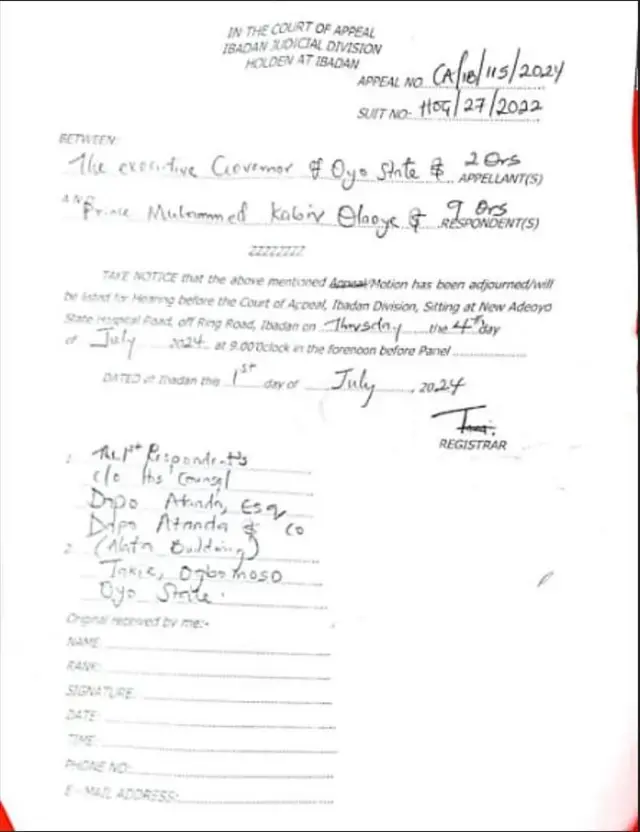 IN THE COURT OF APPEAL
IBADAN JUDICIAL DIVISION
HOLDEN AT IBADAN
APPEAL NO. CA/IB/115/2024
SUIT NO: HOG/27/2022
BETWEEN:
The executive Governor of Oyo State & 2 Ors
APPELLANT(S)
AND
Prince Muhammed Kabir Olaoye & 9 Ors
RESPONDENT(S)
ZZZZZZZZ
TAKE NOTICE that the above mentioned Appeal/Motion has been adjourned/will
be listed for Hearing before the Court of Appeal, Ibadan Division, Sitting at New Adeoyo
State Hospital Road, off Ring Road, Ibadan on Thursday the 4th day
of July 2024 at 9.00'Oclock in the forenoon before Panel
DATED at Ibadan this 1st day of July, 2024
REGISTRAR
1. The 1st Respondent's
c/o His Counsel
Dapo Atanda, Esq
Dapo Atanda & Co
2. (Alata Building)
Takie, Ogbomoso
Oyo State.
Original received by me:-
NAME:
RANK:
SIGNATURE:
DATE:
TIME:
PHONE NO:
E-MAIL ADDRESS: